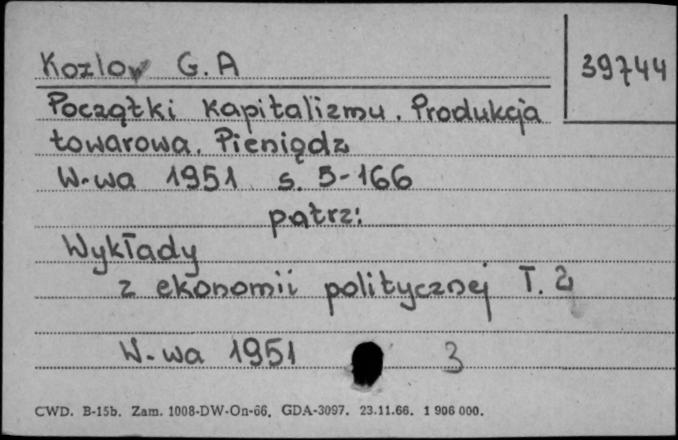 Kozlow G.A
39744
Początki kapitalizmu. Produkcja
towarowa. Pieniądz
W-wa 1951 s. 5-166
patrz:
Wykłady
z ekonomii politycznej T. 2
W-wa 1951 3
CWD. B-15b. Zam. 1008-DW-On-66. GDA-3097. 23.11.66. 1 906 000.